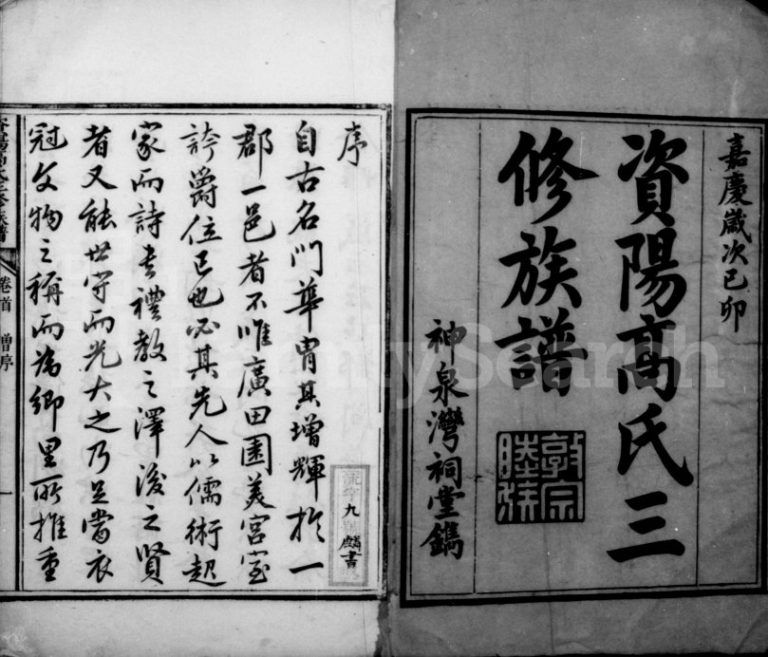 嘉慶歲次己卯
資陽高氏三
修族譜
神泉灣祠堂鐫
敦宗
睦族
序
自古名門華胄其增輝於一
郡一邑者不唯廣田園美宮室
誇爵位已也必其先人以儒術起
家而詩書禮教之澤後之賢
者又能世守而光大之乃足當衣
冠文物之稱而為鄉里所推重
九
麟書
卷首
增序
一
FamilySearch